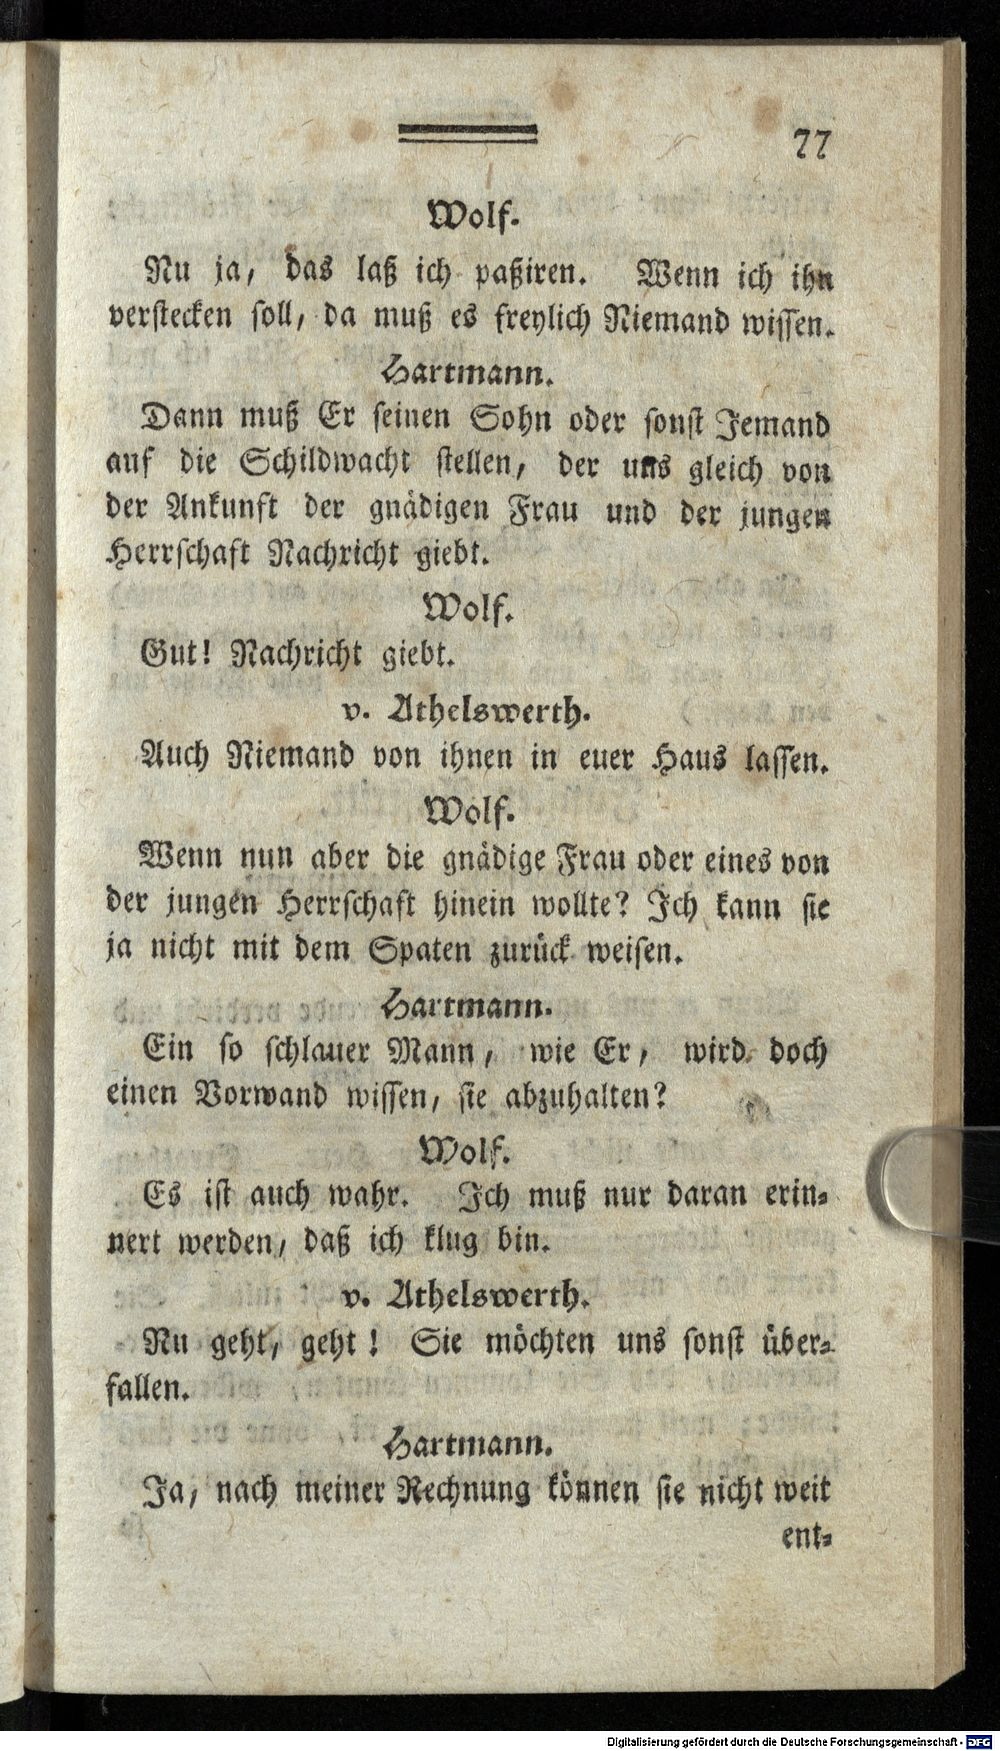 77
Wolf.
Nu ja, das laß ich paßiren. Wenn ich ihn
verstecken soll, da muß es freylich Niemand wissen.
Hartmann.
Dann muß Er seinen Sohn oder sonst Jemand
auf die Schildwacht stellen, der uns gleich von
der Ankunft der gnädigen Frau und der jungen
Herrschaft Nachricht giebt.
Wolf.
Gut! Nachricht giebt.
v. Athelswerth.
Auch Niemand von ihnen in euer Haus lassen.
Wolf.
Wenn nun aber die gnädige Frau oder eines von
der jungen Herrschaft hinein wollte? Ich kann sie
ja nicht mit dem Spaten zurück weisen.
Hartmann.
Ein so schlauer Mann, wie Er, wird doch
einen Vorwand wissen, sie abzuhalten?
Wolf.
Es ist auch wahr. Ich muß nur daran erin-
nert werden, daß ich klug bin.
v. Athelswerth.
Nu geht, geht! Sie möchten uns sonst über-
fallen.
Hartmann.
Ja, nach meiner Rechnung können sie nicht weit
ent-
Digitalisierung gefördert durch die Deutsche Forschungsgemeinschaft - DFG